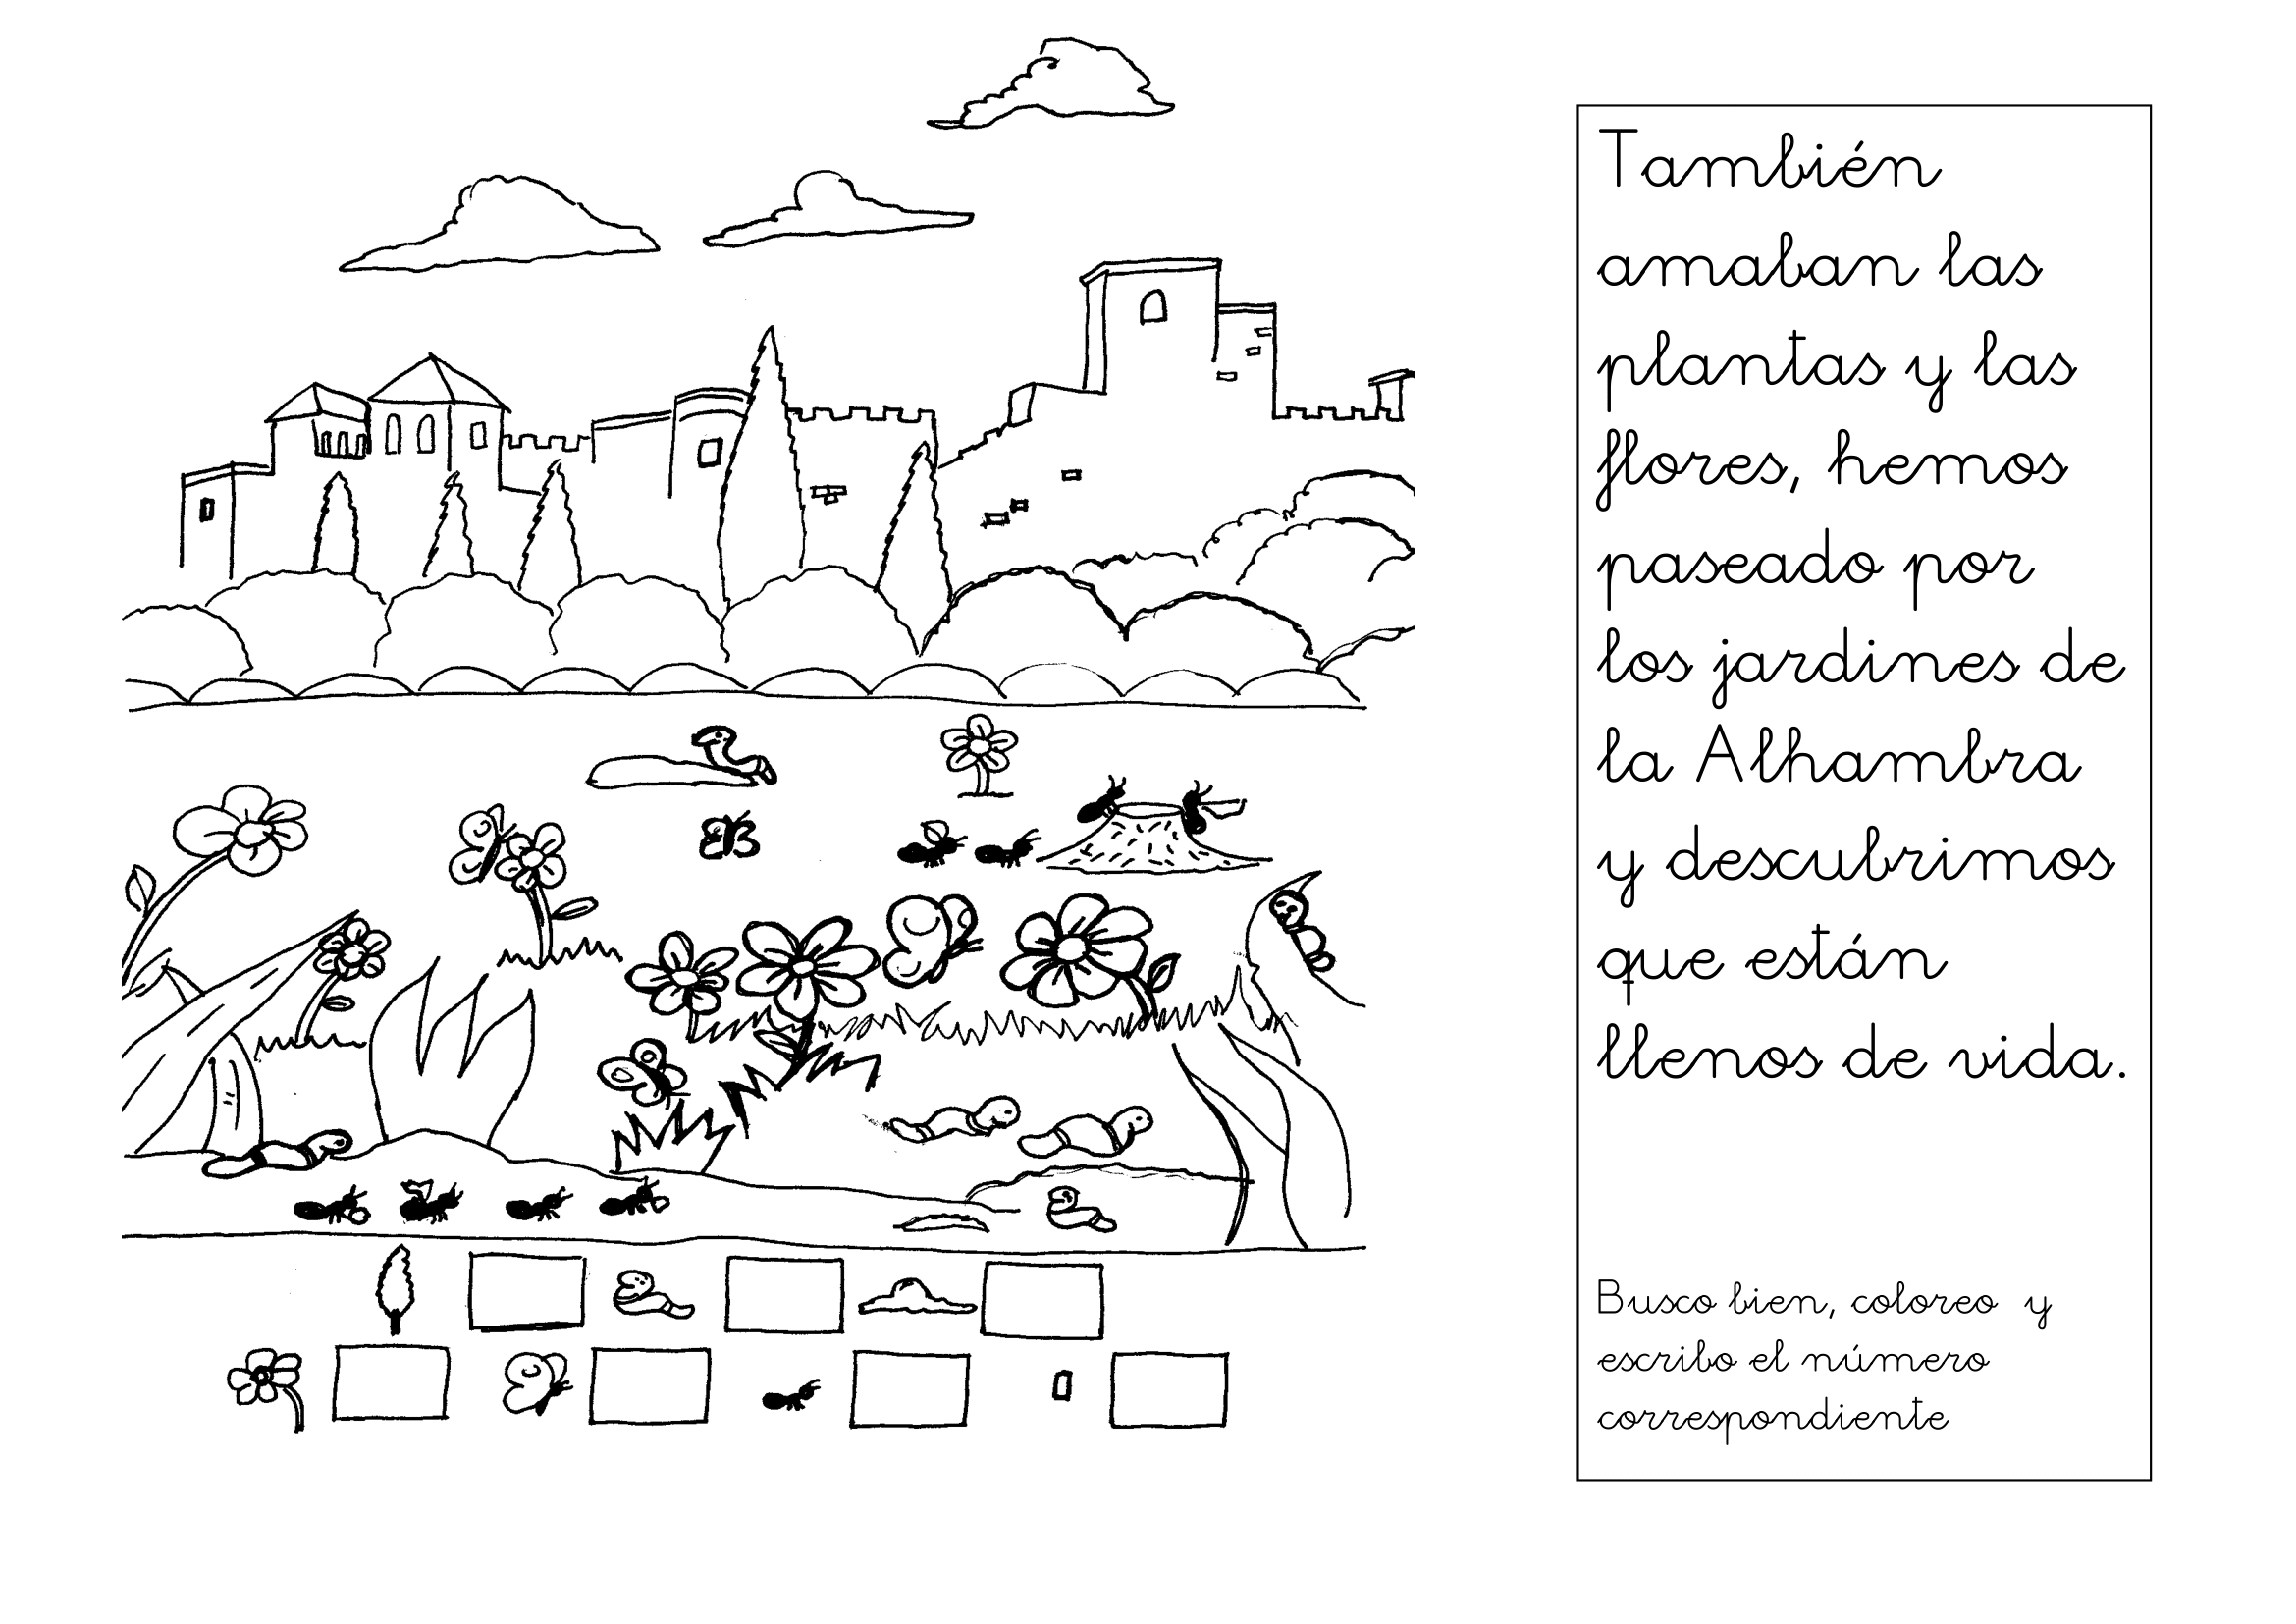 También
amaban las
plantas y las
flores, hemos
paseado por
los jardines de
la Alhambra
y descubrimos
que están
llenos de vida.
Busco bien, coloreo y
escribo el número
correspondiente